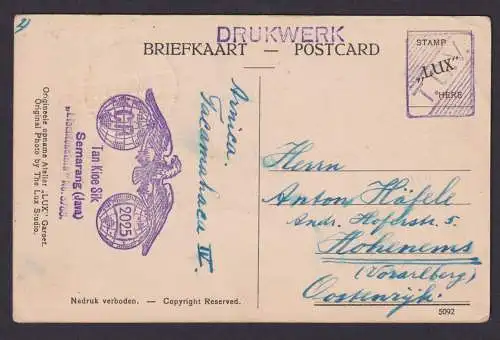 DRUKWERK
BRIEFKAART — POSTCARD
STAMP
„LUX"
HERE
Origineele opname Atelier „LUX" Garoet.
Original Photo by The Lux Studio.
2025
Tan Kioe Sik
Semarang (Java)
Arnica
Tacamahaca IV.
Herrn
Anton Häfele
Andr. Hoferstr. 5.
Hohenems
(Vorarlberg)
Oostenrijk.
Nadruk verboden. — Copyright Reserved.
5092